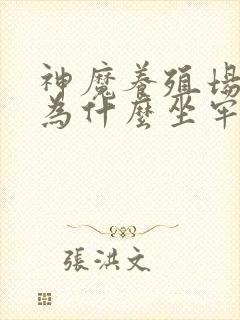 神魔養殖場
為什麼坐牢
張洪文